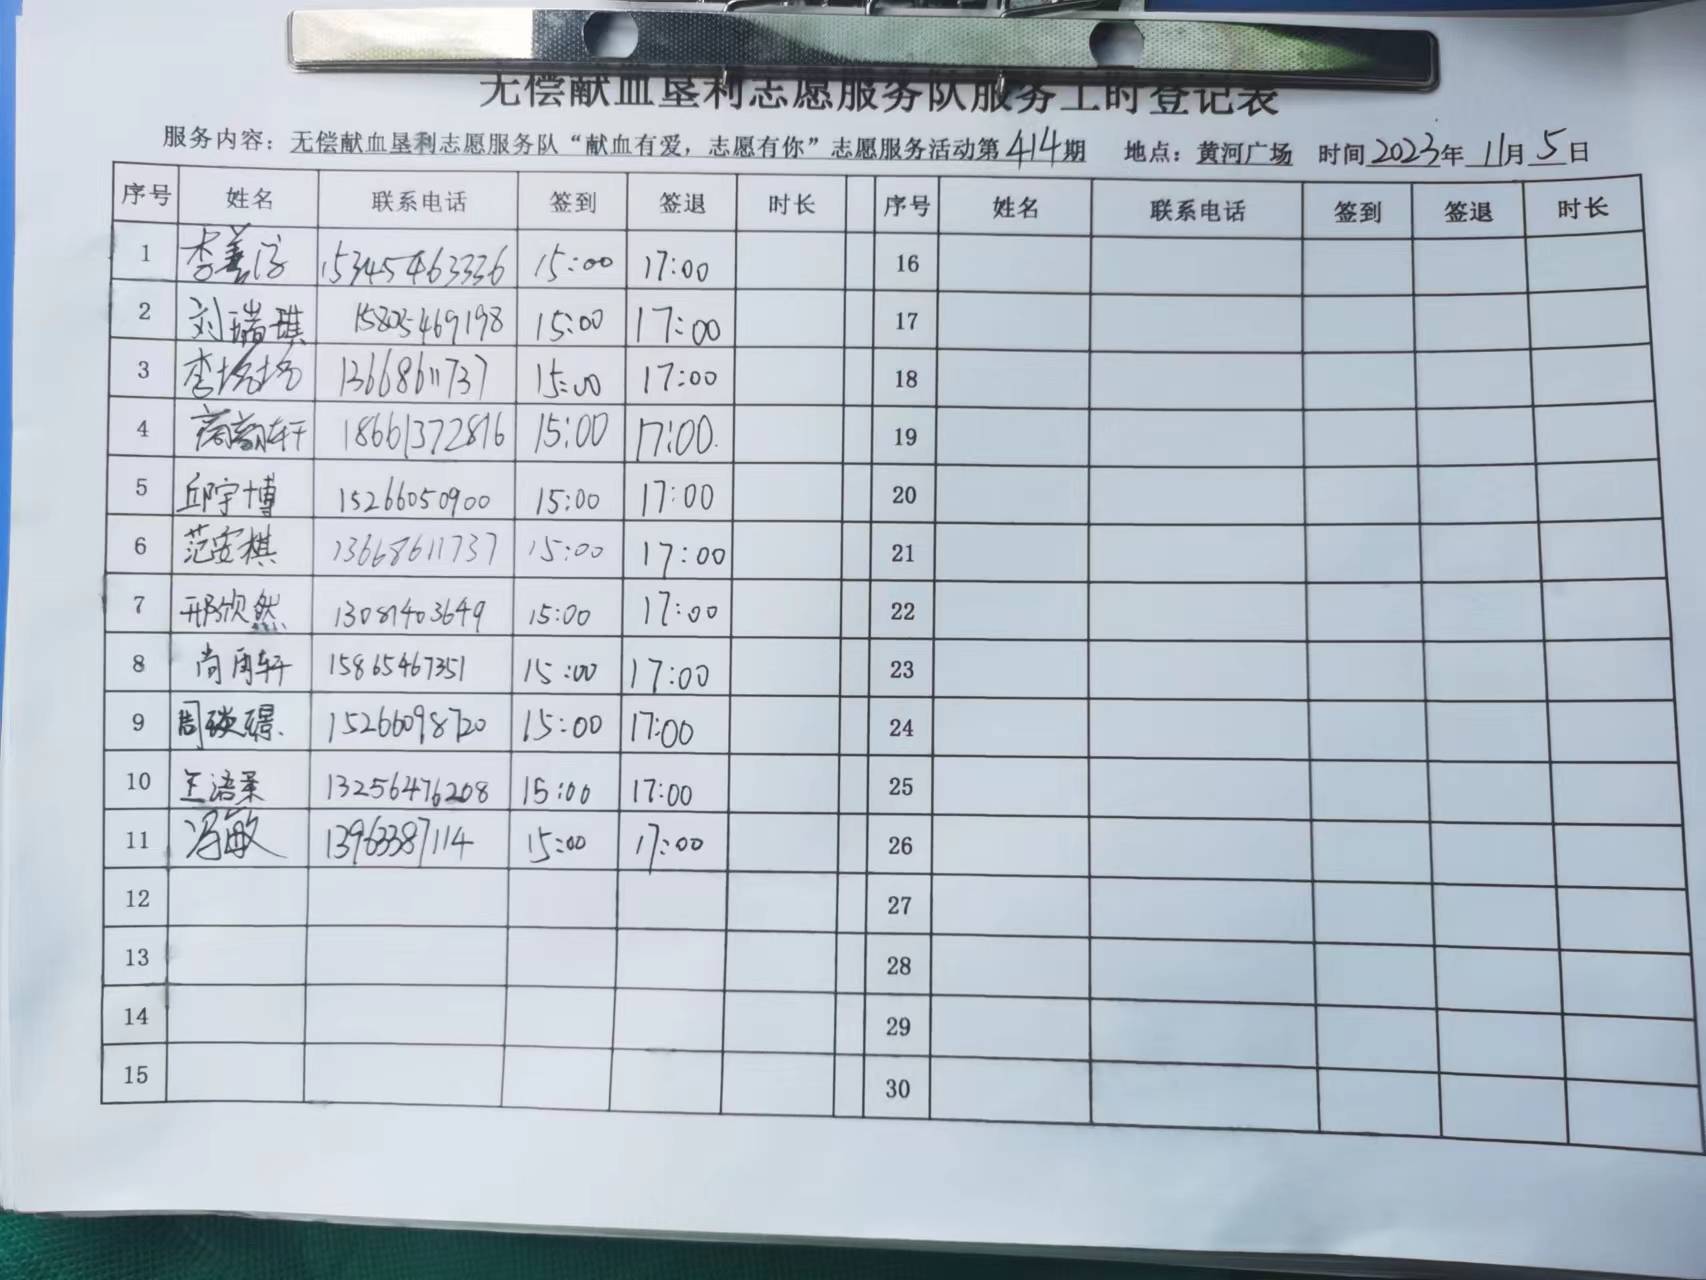 无偿献血垦利志愿服务队服务工时登记表
服务内容：无偿献血垦利志愿服务队“献血有爱，志愿有你”志愿服务活动第414期 地点：黄河广场 时间2023年11月5日
序号 姓名 联系电话 签到 签退 时长 序号 姓名 联系电话 签到 签退 时长
1 李善 15345463336 15:00 17:00 16
2 刘瑞琪 15805469198 15:00 17:00 17
3 李 13668611737 15:00 17:00 18
4 轩 18661372816 15:00 17:00. 19
5 邱宇博 15266050900 15:00 17:00 20
6 范安棋 13668611737 15:00 17:00 21
7 邢欣然 13081403649 15:00 17:00 22
8 尚 轩 15865467351 15:00 17:00 23
9 周瑛璟 15266098720 15:00 17:00 24
10 王语 13256476208 15:00 17:00 25
11 冯敏 13963387114 15:00 17:00 26
12 27
13 28
14 29
15 30